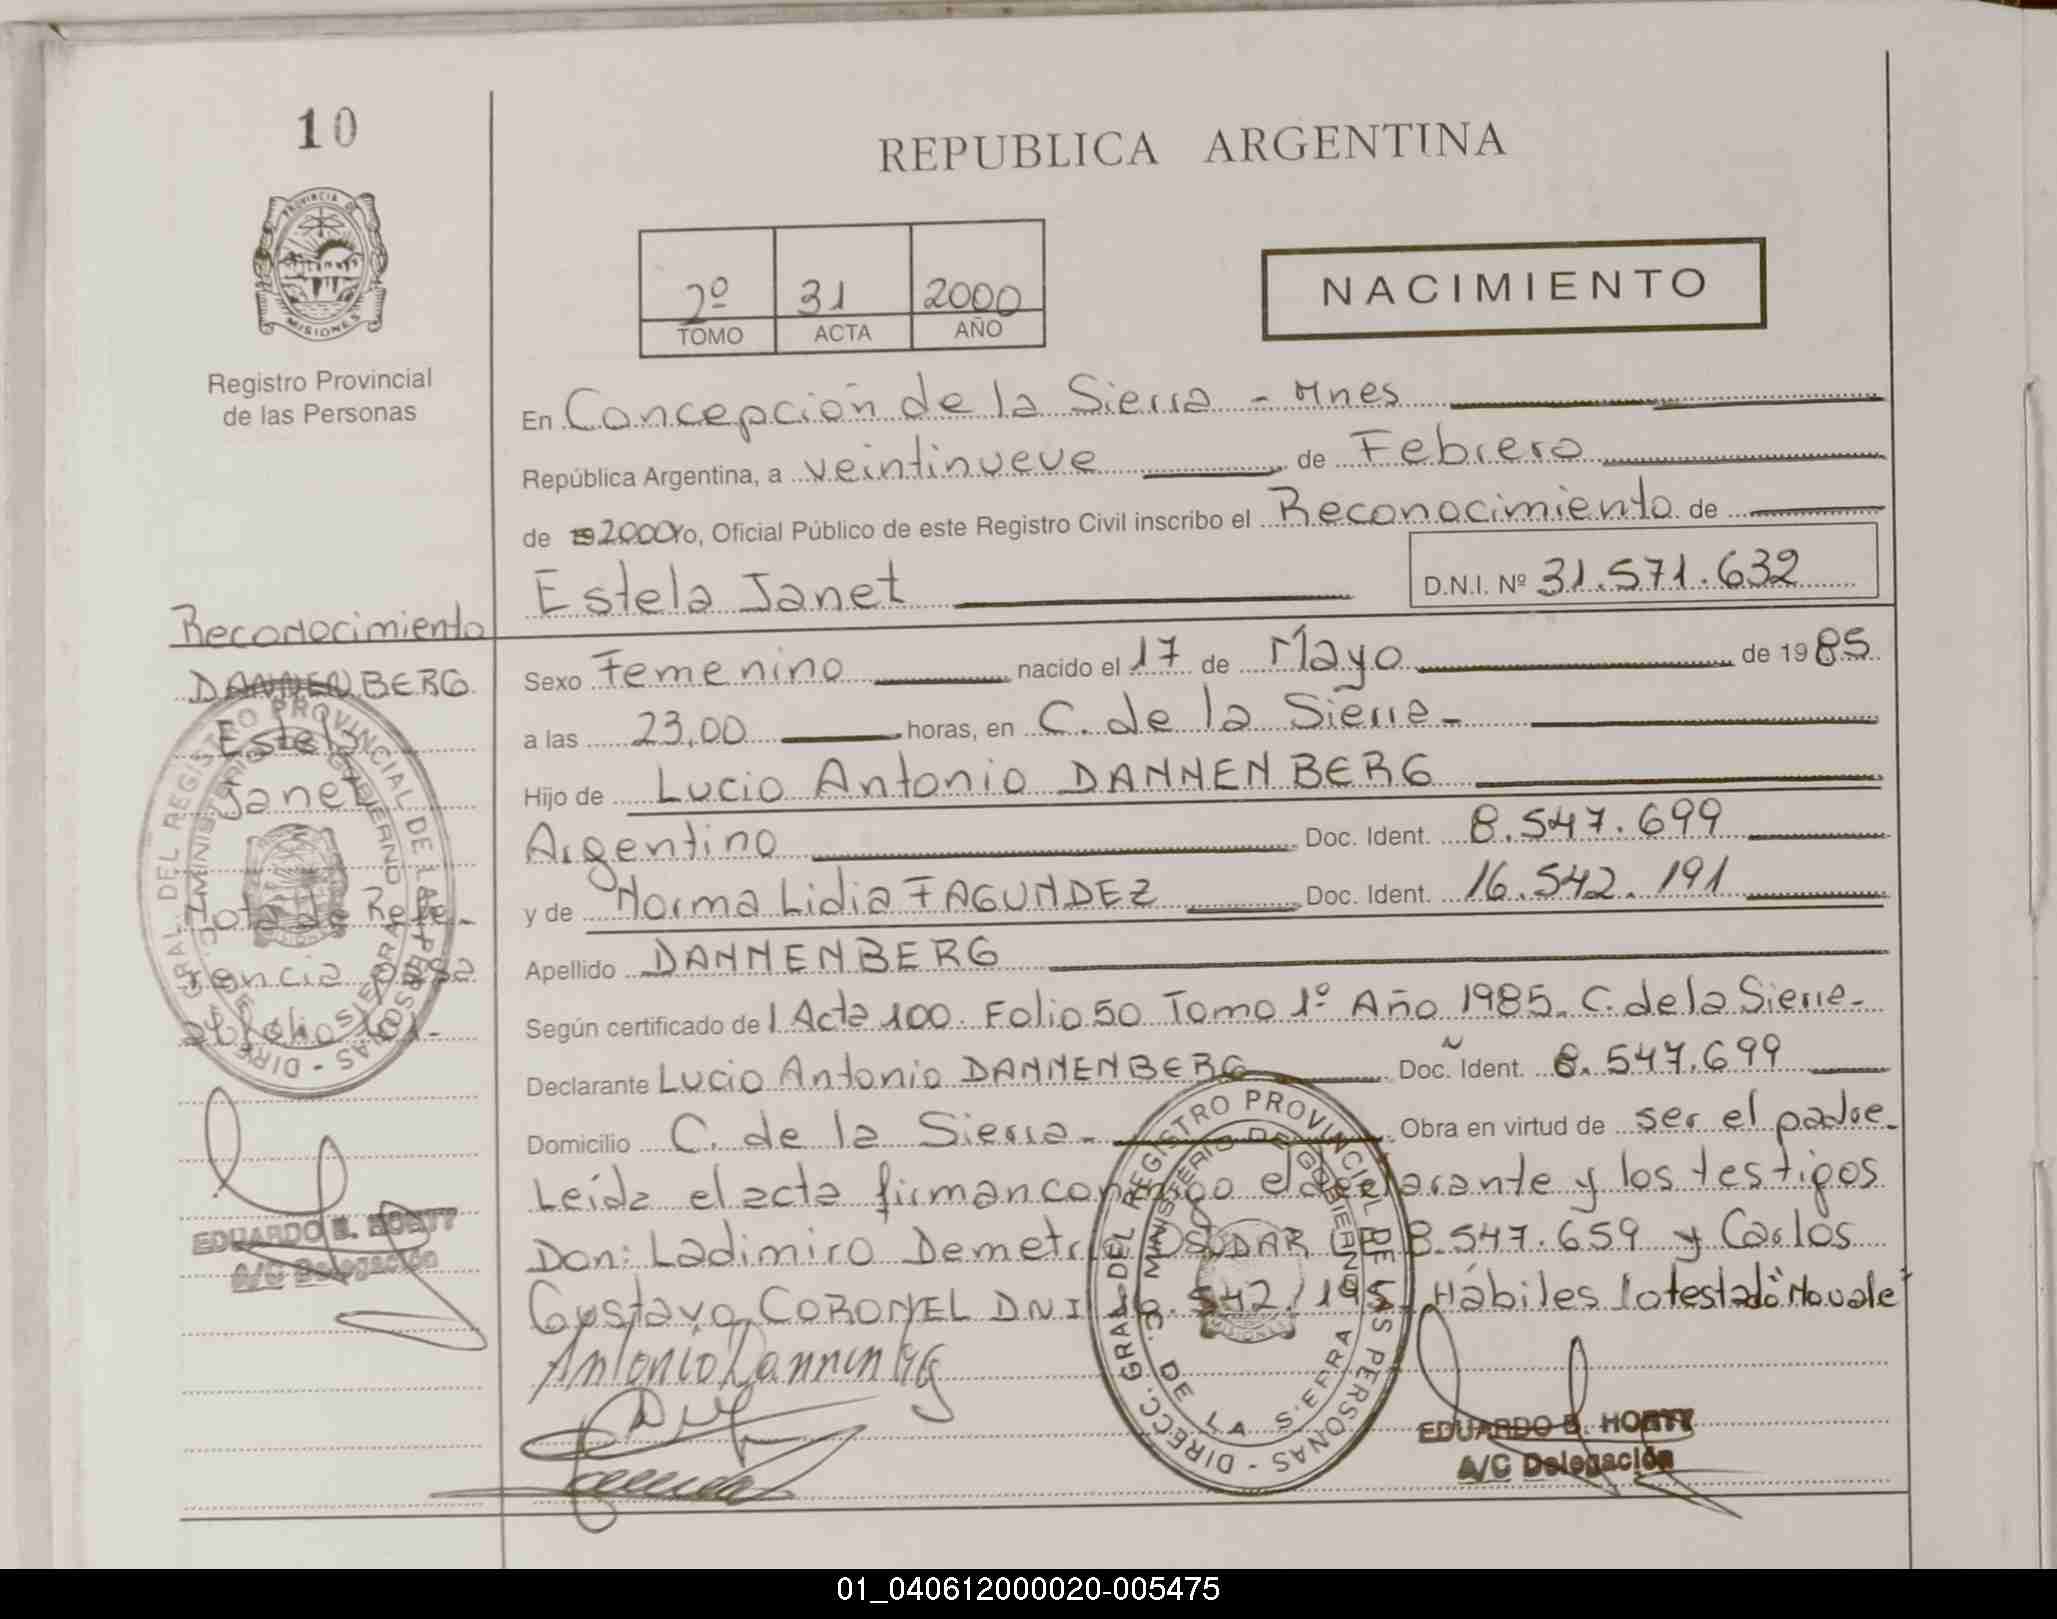 10
REPUBLICA ARGENTINA
PROVINCIA DE
MISIONES
Registro Provincial
de las Personas
2º 31 2000
TOMO ACTA AÑO
NACIMIENTO
En Concepción de la Sierra - Mnes
República Argentina, a veintinueve de Febrero
de 19 2000 Yo, Oficial Público de este Registro Civil inscribo el Reconocimiento de
Estela Janet D.N.I. Nº 31.571.632
Sexo Femenino nacido el 17 de Mayo de 1985
a las 23,00 horas, en C. de la Sierra-
Hijo de Lucio Antonio DANNENBERG
Argentino Doc. Ident. 8.547.699
y de Norma Lidia FAGUNDEZ Doc. Ident. 16.542.191
Apellido DANNENBERG
Según certificado de l Acta 100 Folio 50 Tomo 1º Año 1985. C. de la Sierra-
Declarante Lucio Antonio DANNENBERG Doc. Ident. 8.547.699
Domicilio C. de la Sierra- Obra en virtud de ser el padre-
Leída el acta firman conmigo el declarante y los testigos
Don: Ladimiro Demetrio LE 8.547.659 y Carlos
Gustavo CORONEL DNI 16.542.195 Hábiles lo testado "No vale"
Antonio Dannenberg
DIRECC. GRAL. DEL REGISTRO PROVINCIAL DE LAS PERSONAS
MINISTERIO DE GOBIERNO
C. DE LA SIERRA
MISIONES
EDUARDO B. HORTY
A/C Delegación
Reconocimiento
DANNENBERG
Estela
Janet
Nota de Refe-
rencia pasa
al folio
DIRECC. GRAL. DEL REGISTRO PROVINCIAL DE LAS PERSONAS
MINISTERIO DE GOBIERNO
C. DE LA SIERRA
EDUARDO B. HORTY
A/C Delegación
01_040612000020-005475